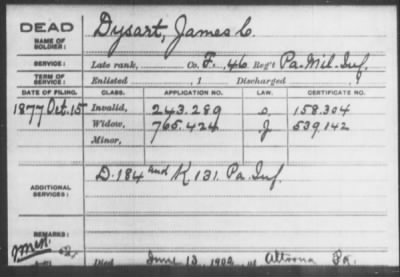 DEAD
NAME OF SOLDIER:
Dysart, James C.
SERVICE:
Late rank, Co. F, 46 Reg't Pa. Mil. Inf.
TERM OF SERVICE:
Enlisted , 1 Discharged , 1
DATE OF FILING. CLASS. APPLICATION NO. LAW. CERTIFICATE NO.
1877 Oct. 15 Invalid, 243.289 158.304
Widow, 765.424 J 539142
Minor,
ADDITIONAL SERVICES:
D. 184 and K. 131. Pa. Inf.
REMARKS:
Died June 13, 1902, at Altoona Pa.